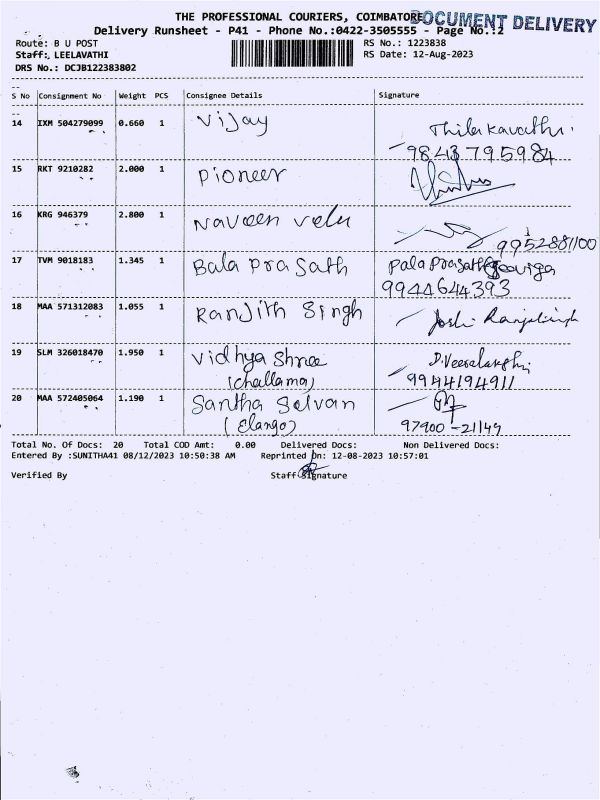 THE PROFESSIONAL COURIERS, COIMBATORE
DOCUMENT DELIVERY
Delivery Runsheet - P41 - Phone No.:0422-3505555 - Page No.:2
Route: B U POST
RS No.: 1223838
Staff:, LEELAVATHI
RS Date: 12-Aug-2023
DRS No.: DCJB122383802
S No Consignment No Weight PCS Consignee Details Signature
14 IXM 504279099 0.660 1 Vijay Thilakavathi.
9843795984
15 RKT 9210282 2.000 1 Pioneer
16 KRG 946379 2.800 1 Naveen Velu
9952881100
17 TVM 9018183 1.345 1 Bala Prasath Pala Prasath
9944644393
18 MAA 571312083 1.055 1 Ranjith Singh Joshi Ranjitsingh
19 SLM 326018470 1.950 1 Vidhya Shree D.Veeralakshmi
(challama) 9944194911
20 MAA 572405064 1.190 1 Santha Selvan
(Elango) 97900-21149
Total No. Of Docs: 20 Total COD Amt: 0.00 Delivered Docs: Non Delivered Docs:
Entered By :SUNITHA41 08/12/2023 10:50:38 AM Reprinted On: 12-08-2023 10:57:01
Verified By Staff Signature